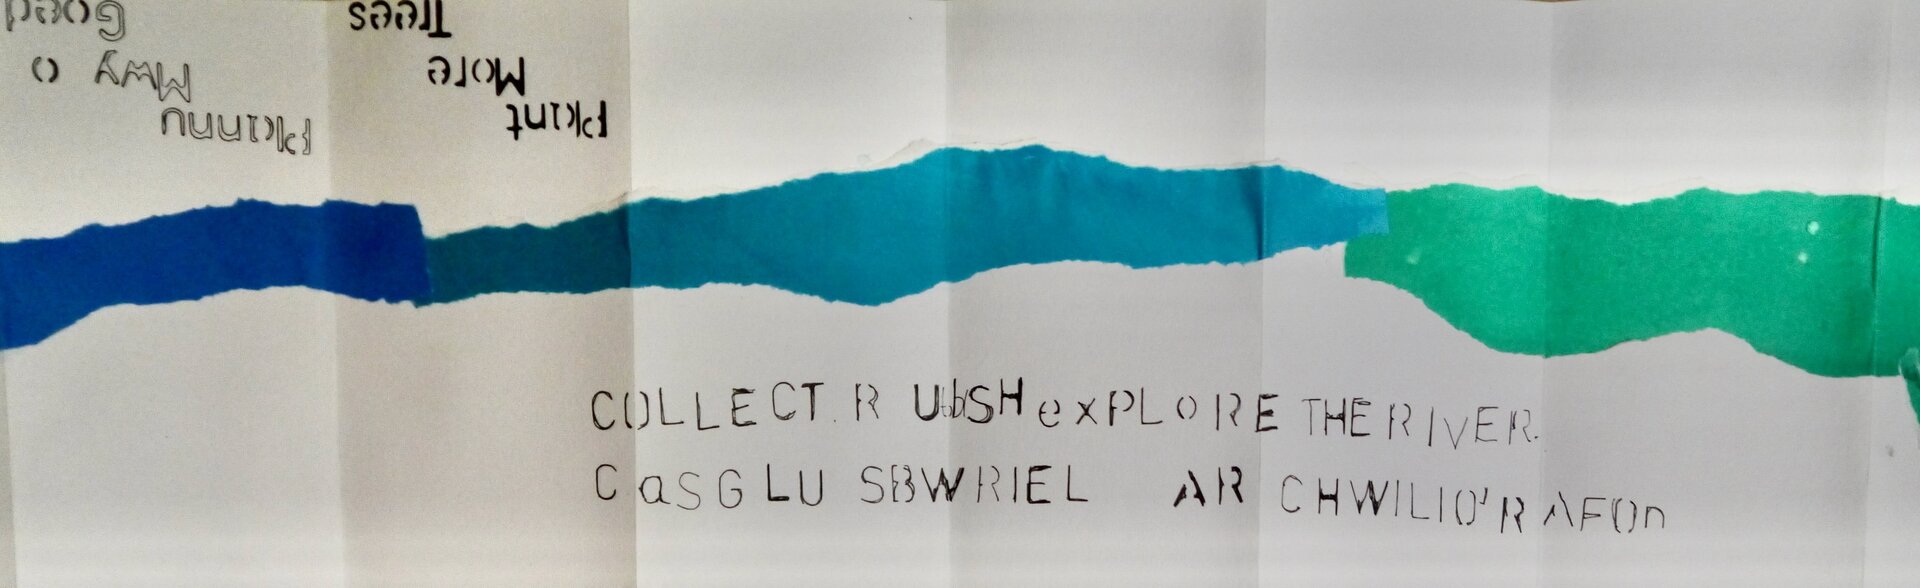 Plannu
Mwy O
Goed
Plant
More
Trees
COLLECT RUbbISH exPLORE THE RIVER.
CaSGLU SBWRIEL AR CHWILIO'R AFOn